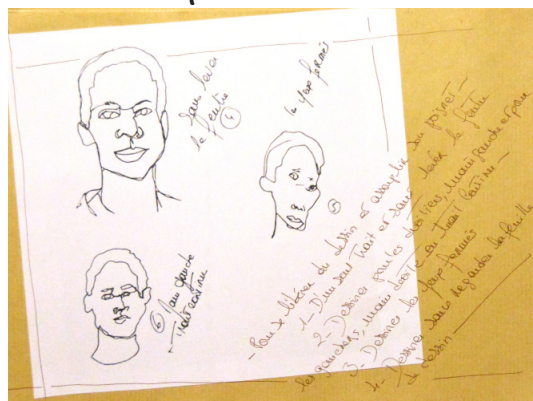 Sans lever
le feutre
④
les yeux fermés
⑤
⑥ Main gauche
+ Trait continu
- Pour se libérer du dessin et assouplir son poignet -
1 - D'un seul trait et sans lever le feutre
2 - Dessiner pour les droitiers, main gauche et pour
les gauchers, main droite en trait continu -
3 - Dessiner les yeux fermés
4 - Dessiner sans regarder la feuille
de dessin